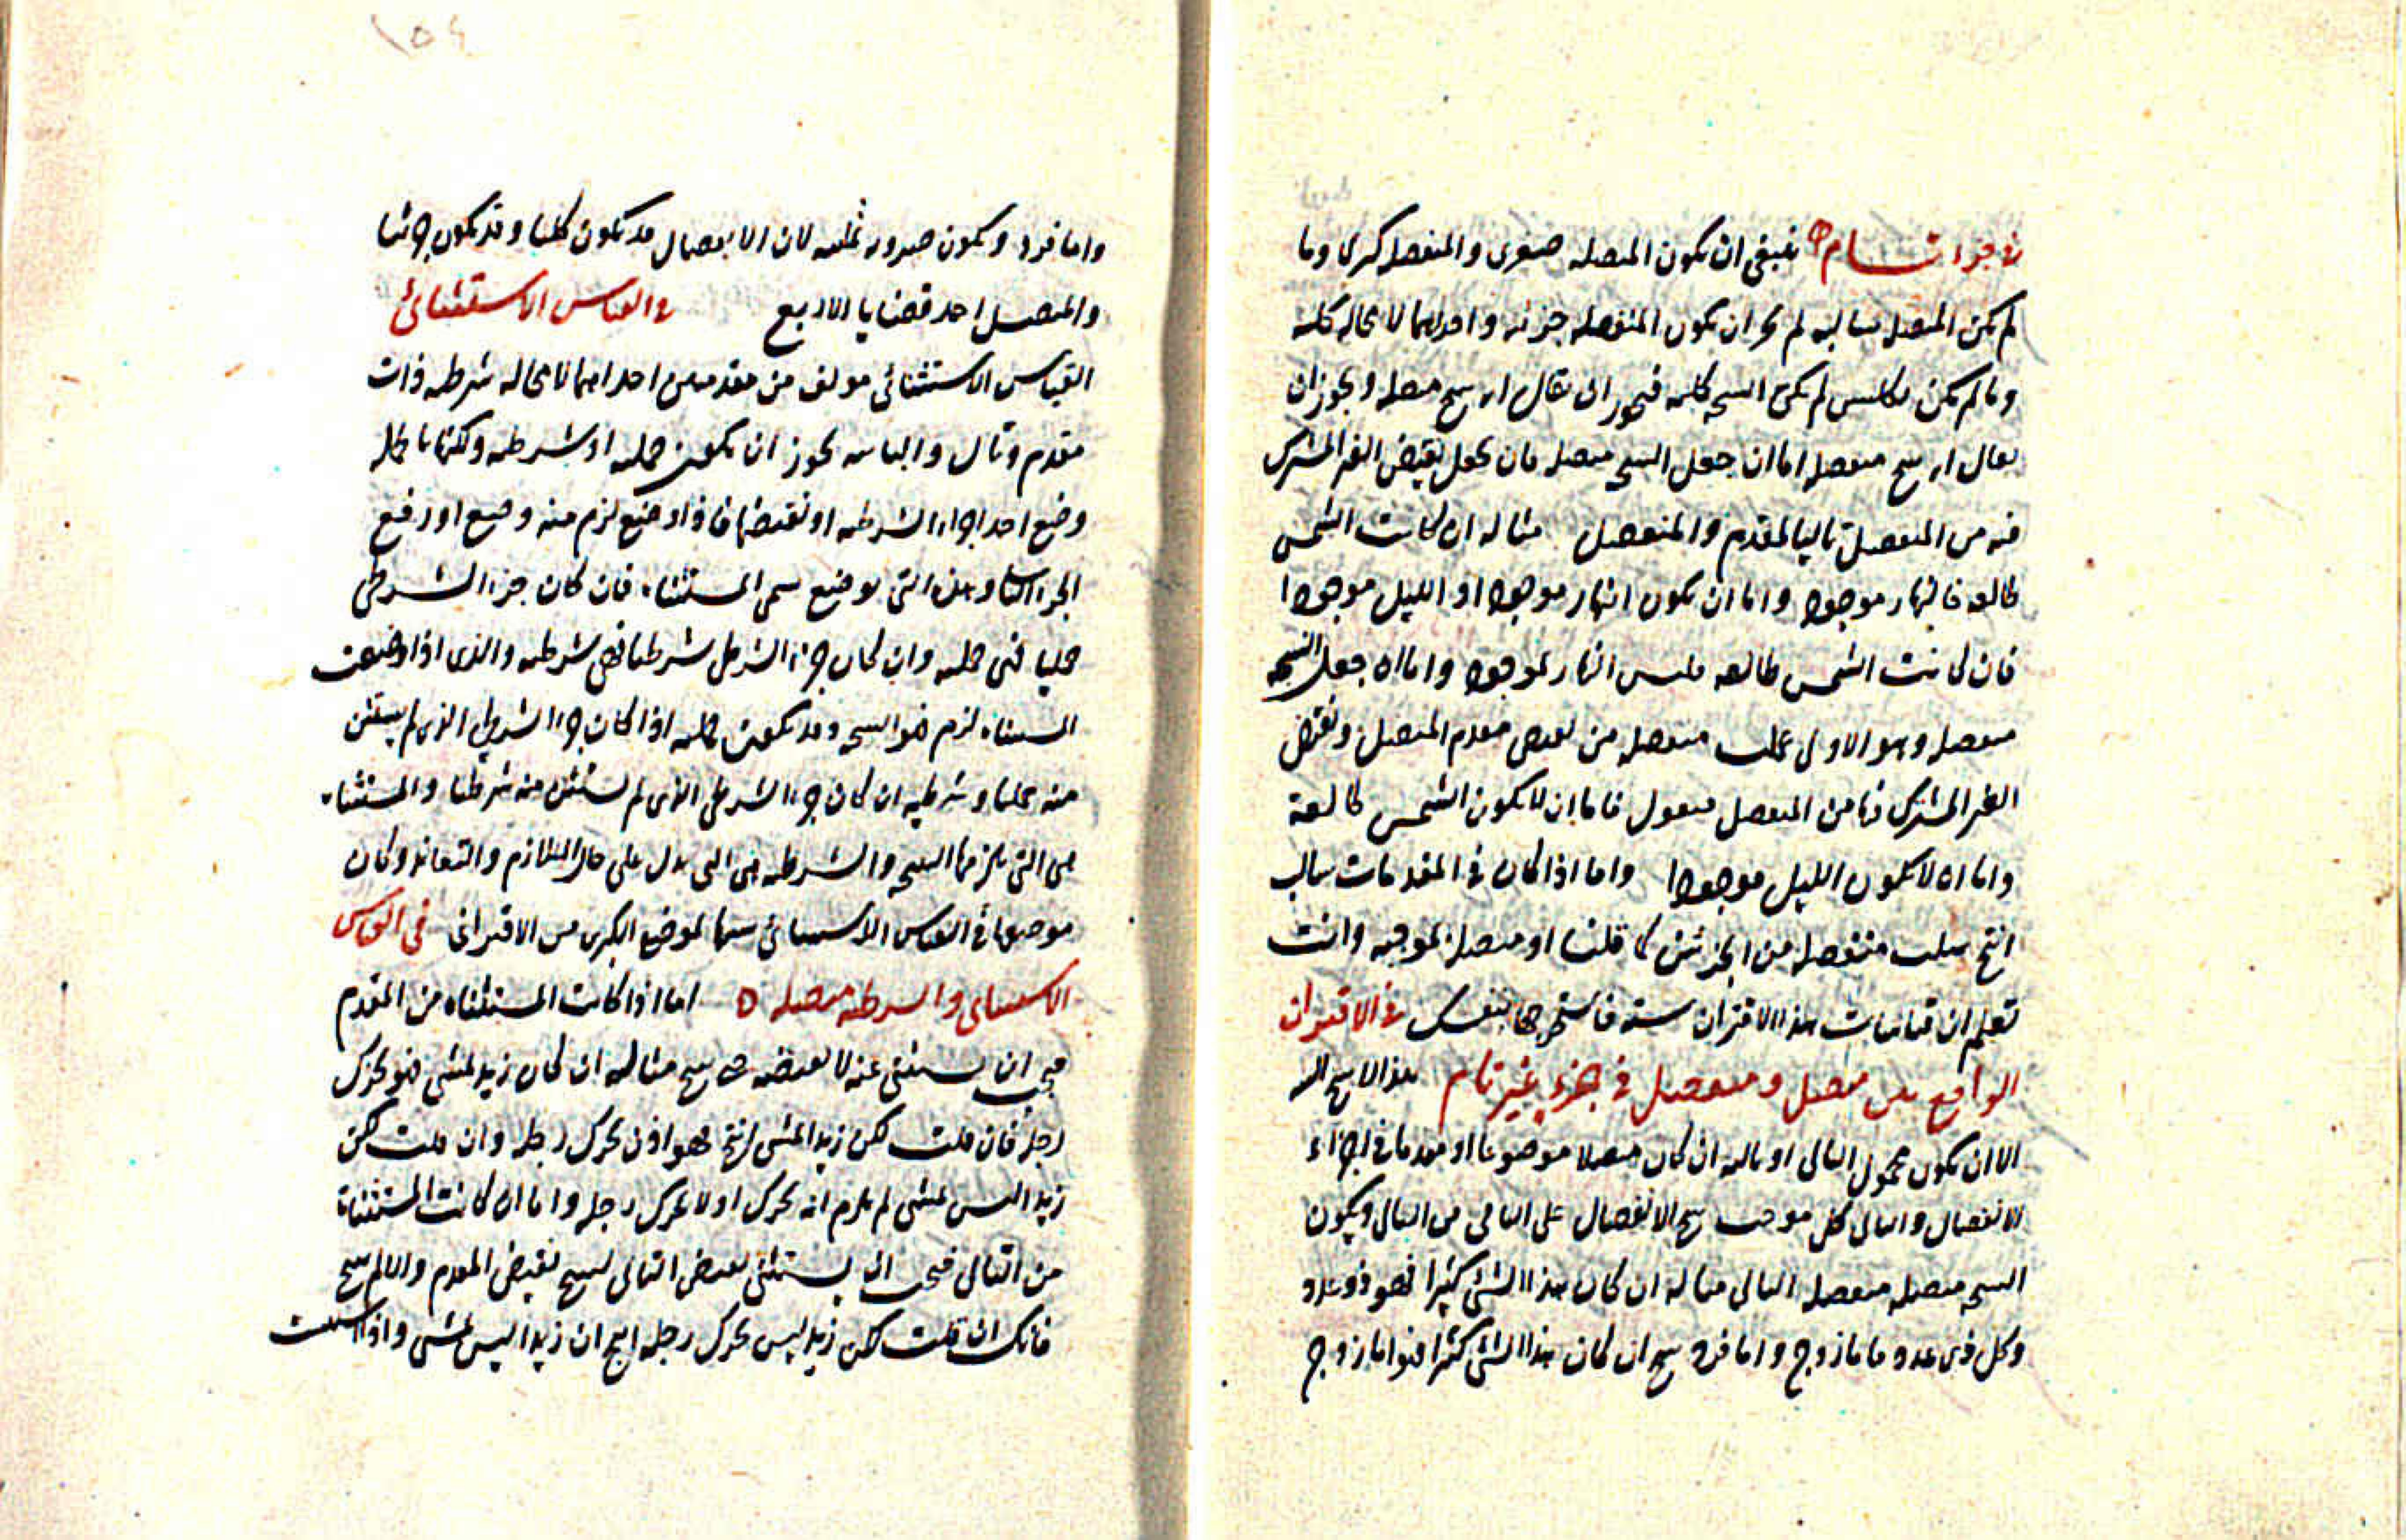 في جزء تام ينبغي ان تكون المتصله صغرى والمنفصله كبرى وما
لم تكن المتصل سالبه لم يجز ان تكون المنفصله جزئيه واحداهما لا محاله كليه
وما لم تكن لم تكن النتيجه كليه فيجوز ان يقال متصله ويجوز ان
يقال منفصله اما ان جعل النتيجه متصله فان يجعل نقيض الغير المشترك
فيه من المنفصل تاليا لمقدم والمتصل مثاله ان كانت الشمس
طالعه فالنهار موجود واما ان يكون النهار موجودا او الليل موجودا
فان كانت الشمس طالعه فليس النهار بموجود واما ان جعل النتيجه
منفصله وهو الاولى عملت منفصله من نقيض مقدم المتصل ونقيض
الغير المشترك فيه من المنفصل فيقول فاما ان لا يكون الشمس طالعة
واما ان لا يكون الليل موجودا واما اذا كان في المقدمات سالب
انتج سلب منفصله من الجزئين كما قلنا او متصله موجبه وانت
تعلم ان قياسات هذا الاقتران سته فاستخرجها بنفسك في الاقتران
الواقع بين متصل ومنفصل في جزء غير تام هذا لا ينتج الينه
الا ان يكون محمول التالي او تاليه ان كان متصلا موضوعا او مقدما في اجزاء
الانفصال والتالي كلى موجب ينتج الانفصال على الباقي من التالي ويكون
النتيجه متصله منفصله التالي مثاله ان كان هذا الشئ كثيرا فهو ذو عدد
وكل ذي عدد فاما زوج واما فرد ينتج ان كان هذا الشئ كثيرا فهو اما زوج
واما فرد ويكون ضروبه لان الاتصال قد يكون كليا وقد يكون جزئيا
والمتصل احد قضايا الاربع في القياس الاستثنائي
القياس الاستثنائي مولف من مقدمتين احداهما لا محاله شرطيه ذات
مقدم وتال والثانيه يجوز ان يكون حمليه او شرطيه ولكنها
وضع احد اجزاء الشرطيه او نقيضها فاذا وضع لزم منه وضع او رفع
الجزء الثاني وهذه التي توضع سمى المستثناه فان كان جزء الشرطي
حمليا فهى حمليه وان كان جزء الشرطي شرطيا فهي شرطيه والذي اذا وضعت
المستثناه لزم هو النتيجه وقد يكون حمليه اذا كان جزء الشرطي الذي لم يستثن
منه حمليا وشرطيه ان كان جزء الشرطي الذي لم يستثن منه شرطيا والمستثناه
هى التي يلزمها النتيجه والشرطيه هى التي يدل على حال التلازم والتعاند وكان
موضعها في القياس الاستثنائي سيما لموضع الكبرى من الاقتراني في القياس
الاستثنائي والشرطيه متصله اما اذا كانت المستثناه من المقدم
فيجب ان يستثنى عينه لا نقيضه حتى ينتج مثاله ان كان زيد يمشي فهو يحرك
رجله فان قلت لكن زيدا يمشي انتج فهو اذن يحرك رجله وان قلت لكن
زيد اليس يمشى لم يلزم انه يحرك او لا يحرك رجله واما ان كانت المستثناة
من التالي فيجب ان يستثنى نقيض التالي لينتج نقيض المقدم والا لم ينتج
فانك ان قلت لكن زيد ليس يحرك رجله انتج ان زيدا ليس يمشى واذا